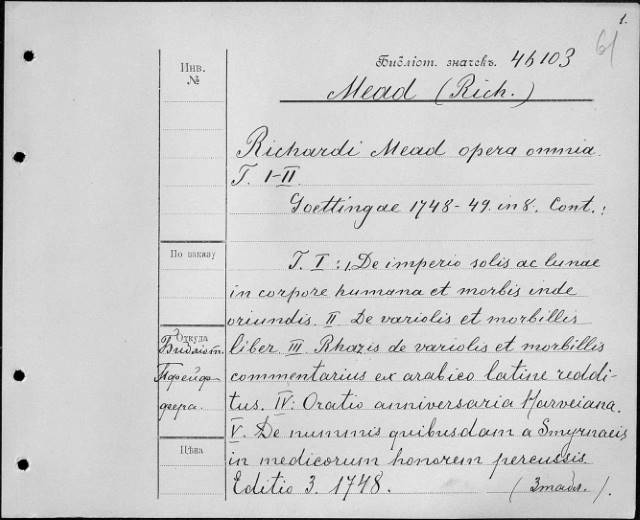 1.
61
Библіот. значекъ. 46103
Инв.
№
Mead (Rich.)
Richardi Mead opera omnia.
T. I-II.
Goettingae 1748-49. in 8. Cont.:
По заказу
T. I: I, De imperio solis ac lunae
in corpore humana et morbis inde
oriundis. II De variolis et morbillis
Откуда
Библіот.
Пфейф-
фера.
liber. III Rhazis de variolis et morbillis
commentarius ex arabico latine reddi-
tus. IV. Oratio anniversaria Harveiana.
V. De nummis quibusdam a Smyrnaeis
Цѣна
in medicorum honorem percussis.
Editio 3. 1748.